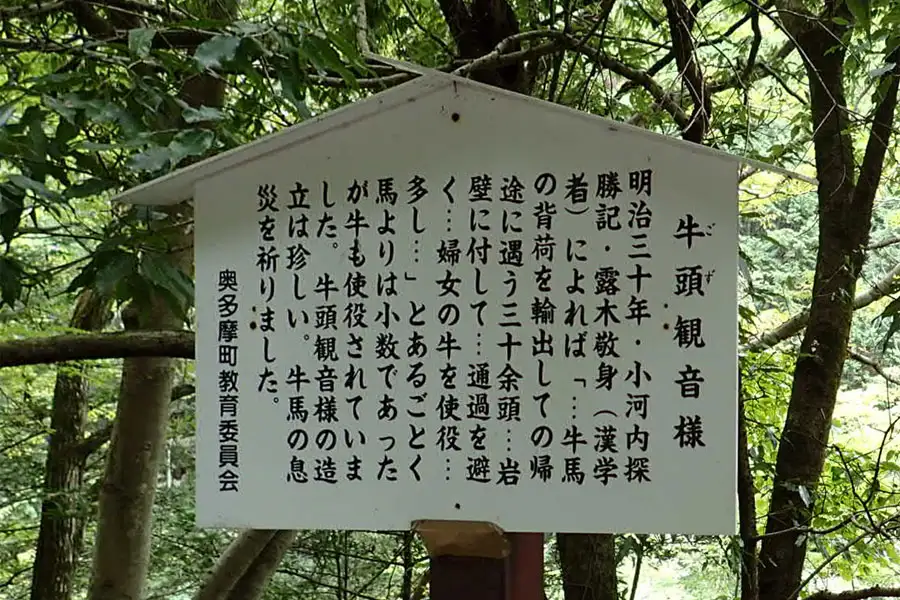 牛頭観音様
ごず
明治三十年・小河内探
勝記・露木敬身（漢学
者）によれば「…牛馬
の背荷を輸出しての帰
途に遇う三十余頭…岩
壁に付して…通過を避
く…婦女の牛を使役…
多し…」とあるごとく
馬よりは小数であった
が牛も使役されていま
した。牛頭観音様の造
立は珍しい。牛馬の息
災を祈りました。
奥多摩町教育委員会